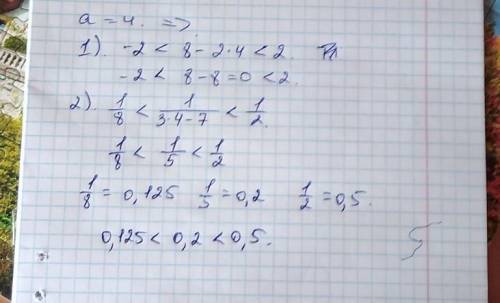 a = 4. =>
1). -2 < 8 - 2·4 < 2.
-2 < 8 - 8 = 0 < 2.
2). 1/8 < 1/(3·4-7) < 1/2.
1/8 < 1/5 < 1/2
1/8 = 0,125 1/5 = 0,2 1/2 = 0,5.
0,125 < 0,2 < 0,5.